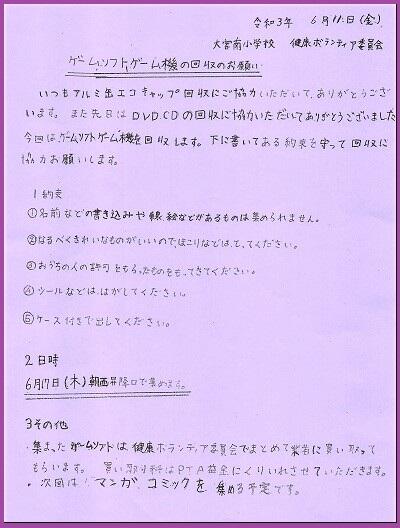 令和3年 6月11日(金)
大宮南小学校 健康ボランティア委員会
ゲームソフト,ゲーム機の回収のお願い
いつもアルミ缶エコキャップ回収にご協力いただいて、ありがとうござい
ます。また先日はDVD,CDの回収にご協力いただいてありがとうございました
今回は、ゲームソフト,ゲーム機を回収します。下に書いてある約束を守って回収に
協力お願いします。
1 約束
①名前などの書き込みや線、絵などがあるものは集められません。
②なるべくきれいなものがいいので、ほこりなどは、とってください。
③おうちの人の許可をもらったものをもってきてください。
④シールなどは、はがしてください。
⑤ケース付きで出してください。
2 日時
6月17日(木)朝西昇降口で集めます。
3その他
・集まったゲームソフトは健康ボランティア委員会でまとめて業者に買い取って
もらいます。買い取り料はPTA基金にくりいれさせていただきます。
・次回は!マンガ、コミックを集める予定です。